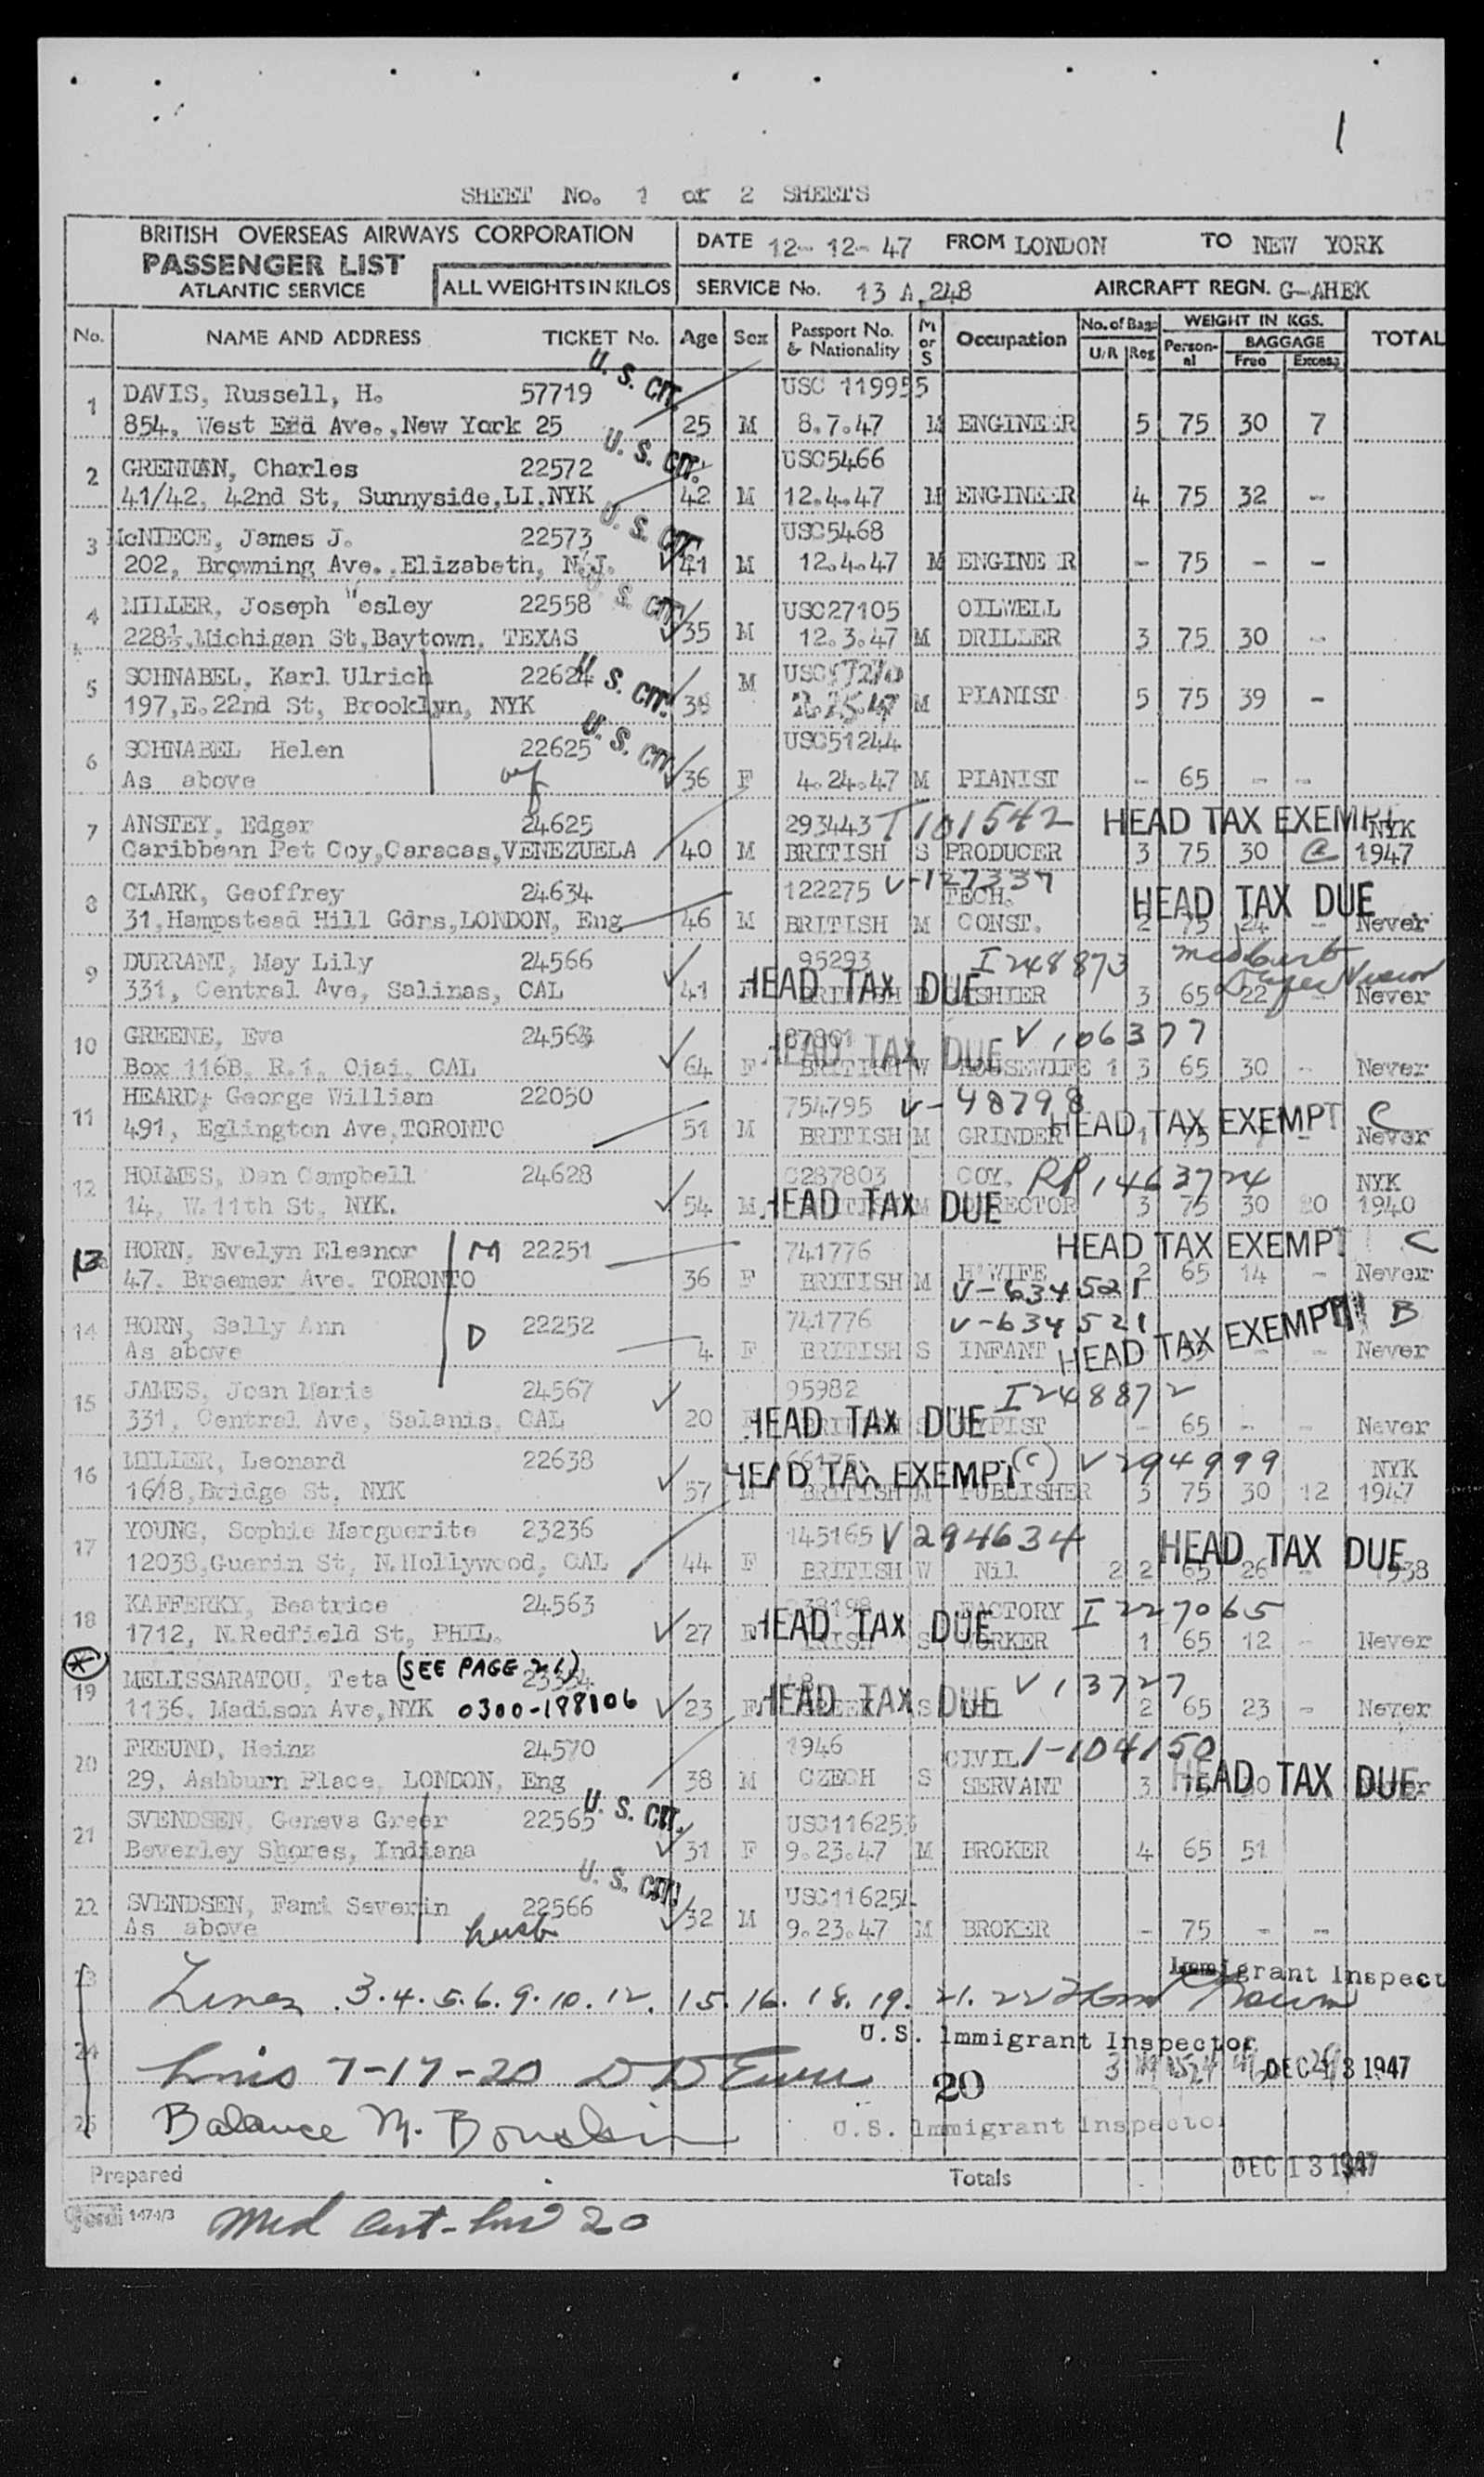 1
SHEET No. 1 of 2 SHEETS
BRITISH OVERSEAS AIRWAYS CORPORATION
PASSENGER LIST
ATLANTIC SERVICE
ALL WEIGHTS IN KILOS
DATE 12-12-47 FROM LONDON TO NEW YORK
SERVICE No. 13 A.248 AIRCRAFT REGN. G-AHEK
No. NAME AND ADDRESS TICKET No. Age Sex Passport No. & Nationality M or S Occupation No. of Bags U/R Reg WEIGHT IN KGS. Personal BAGGAGE Free Excess TOTAL
1 DAVIS, Russell, H. 57719 U. S. CIT. USC 119955
854, West End Ave.,New York 25 25 M 8.7.47 M ENGINEER 5 75 30 7
2 GRENNAN, Charles 22572 U. S. CIT. USC5466
41/42, 42nd St, Sunnyside,LI.NYK 42 M 12.4.47 M ENGINEER 4 75 32 -
3 McNIECE, James J. 22573 U. S. CIT. USC5468
202, Browning Ave.,Elizabeth, N.J. 41 M 12.4.47 M ENGINE R - 75 - -
4 MILLER, Joseph Wesley 22558 U. S. CIT. USC27105 OILWELL
228½,Michigan St,Baytown, TEXAS 35 M 12.3.47 M DRILLER 3 75 30 -
5 SCHNABEL, Karl Ulrich 22624 U. S. CIT. M USC
197,E.22nd St, Brooklyn, NYK 38 M PIANIST 5 75 39 -
6 SCHNABEL Helen 22625 U. S. CIT. USC51244
As above wf 36 F 4.24.47 M PIANIST - 65 - -
7 ANSTEY, Edgar 24625 293443 T 101542 HEAD TAX EXEMPT NYK
Caribbean Pet Coy,Caracas,VENEZUELA 40 M BRITISH S PRODUCER 3 75 30 1947
8 CLARK, Geoffrey 24634 122275 V-127337 TECH. HEAD TAX DUE
31,Hampstead Hill Gdns,LONDON, Eng 46 M BRITISH M CONST. 2 75 24 - Never
9 DURRANT, May Lily 24566 95293 I248873 HEAD TAX DUE
331, Central Ave, Salinas, CAL 41 3 65 22 - Never
10 GREENE, Eva 24564 V106377 HEAD TAX DUE
Box 116B, R.1, Ojai, CAL 64 F BRITISH W HOUSEWIFE 1 3 65 30 - Never
11 HEARD, George William 22050 754795 V-48798 HEAD TAX EXEMPT C
491, Eglington Ave,TORONTO 51 M BRITISH M GRINDER 1 75 - Never
12 HOLMES, Dan Campbell 24628 C287803 COY. RP1463724 NYK
14, W.11th St, NYK. 54 M HEAD TAX DUE DIRECTOR 3 75 30 20 1940
13 HORN, Evelyn Eleanor M 22251 741776 HEAD TAX EXEMPT C
47, Braemer Ave, TORONTO 36 F BRITISH M H'WIFE 2 65 14 - Never
V-634521
14 HORN, Sally Ann D 22252 741776 V-634521 HEAD TAX EXEMPT B
As above 4 F BRITISH S INFANT - - Never
15 JAMES, Joan Marie 24567 95982 I248872
331, Central Ave, Salanis, CAL 20 HEAD TAX DUE TYPIST - 65 - - Never
16 MILLER, Leonard 22638 HEAD TAX EXEMPT (C) V294999 NYK
1618,Bridge St, NYK 57 M BRITISH M PUBLISHER 3 75 30 12 1947
17 YOUNG, Sophie Marguerite 23236 145165 V294634 HEAD TAX DUE
12038,Guerin St, N.Hollywood, CAL 44 F BRITISH W Nil 2 2 65 26 - 1938
18 KAFFERKY, Beatrice 24563 HEAD TAX DUE FACTORY I227065
1712, N.Redfield St, PHIL. 27 F IRISH S WORKER 1 65 12 - Never
19 MELISSARATOU, Teta (SEE PAGE 21) HEAD TAX DUE V13727
1136, Madison Ave,NYK 0300-188106 23 F S 2 65 23 - Never
20 FREUND, Heinz 24570 1946 CIVIL I-104150
29, Ashburn Place, LONDON, Eng 38 M CZECH S SERVANT 3 HEAD TAX DUE
21 SVENDSEN, Geneva Greer 22565 U. S. CIT. USC116253
Beverley Shores, Indiana 31 F 9.23.47 M BROKER 4 65 51
22 SVENDSEN, Fami Severin 22566 U. S. CIT. USC116254
As above husb 32 M 9.23.47 M BROKER - 75 - -
23 Immigrant Inspect
Lines 3.4.5.6.9.10.12.15.16.18.19.21.22
U.S. Immigrant Inspector
24 Lines 7-17-20 20 DEC 13 1947
25 Balance M. U.S. Immigrant Inspector
DEC 13 1947
Prepared Totals
1474/3 Med Cert - line 20